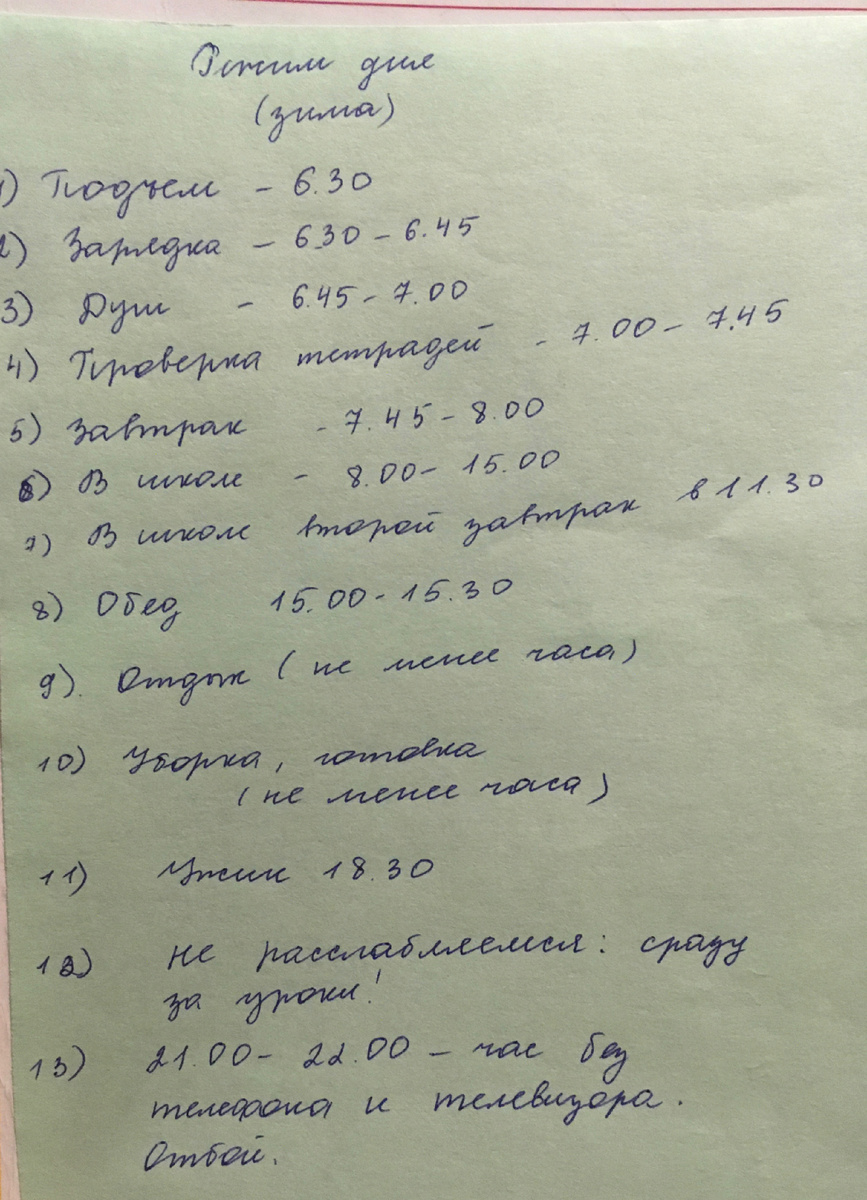 Режим дня
(зима)
1) Подъем - 6.30
2) Зарядка - 6.30 - 6.45
3) Душ - 6.45 - 7.00
4) Проверка тетрадей - 7.00 - 7.45
5) Завтрак - 7.45 - 8.00
6) В школе - 8.00 - 15.00
7) В школе второй завтрак в 11.30
8) Обед 15.00 - 15.30
9). Отдых (не менее часа)
10) Уборка, готовка
(не менее часа)
11) Ужин 18.30
12) Не расслабляемся: сразу
за уроки!
13) 21.00 - 22.00 - час без
телефона и телевизора.
Отбой.